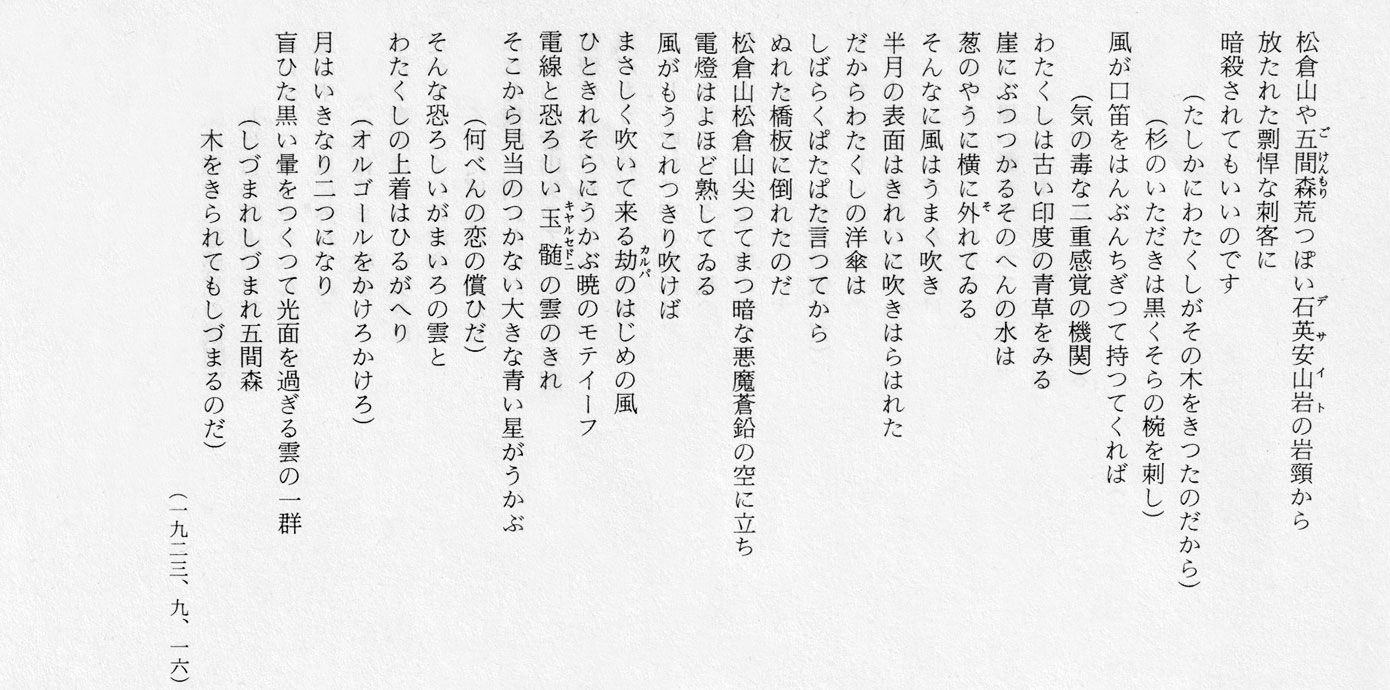 松倉山や五間森荒つぽい石英安山岩の岩頸から
放たれた剽悍な刺客に
暗殺されてもいいのです
（たしかにわたくしがその木をきつたのだから）
（杉のいただきは黒くそらの椀を刺し）
風が口笛をはんぶんちぎつて持つてくれば
（気の毒な二重感覚の機関）
わたくしは古い印度の青草をみる
崖にぶつつかるそのへんの水は
葱のやうに横に外れてゐる
そんなに風はうまく吹き
半月の表面はきれいに吹きはらはれた
だからわたくしの洋傘は
しばらくぱたぱた言つてから
ぬれた橋板に倒れたのだ
松倉山松倉山尖つてまつ暗な悪魔蒼鉛の空に立ち
電燈はよほど熟してゐる
風がもうこれつきり吹けば
まさしく吹いて来る劫のはじめの風
ひときれそらにうかぶ暁のモテイーフ
電線と恐ろしい玉髄の雲のきれ
そこから見当のつかない大きな青い星がうかぶ
（何べんの恋の償ひだ）
そんな恐ろしいがまいろの雲と
わたくしの上着はひるがへり
（オルゴールをかけろかけろ）
月はいきなり二つになり
盲ひた黒い暈をつくつて光面を過ぎる雲の一群
（しづまれしづまれ五間森
木をきられてもしづまるのだ）
（一九二三、九、一六）